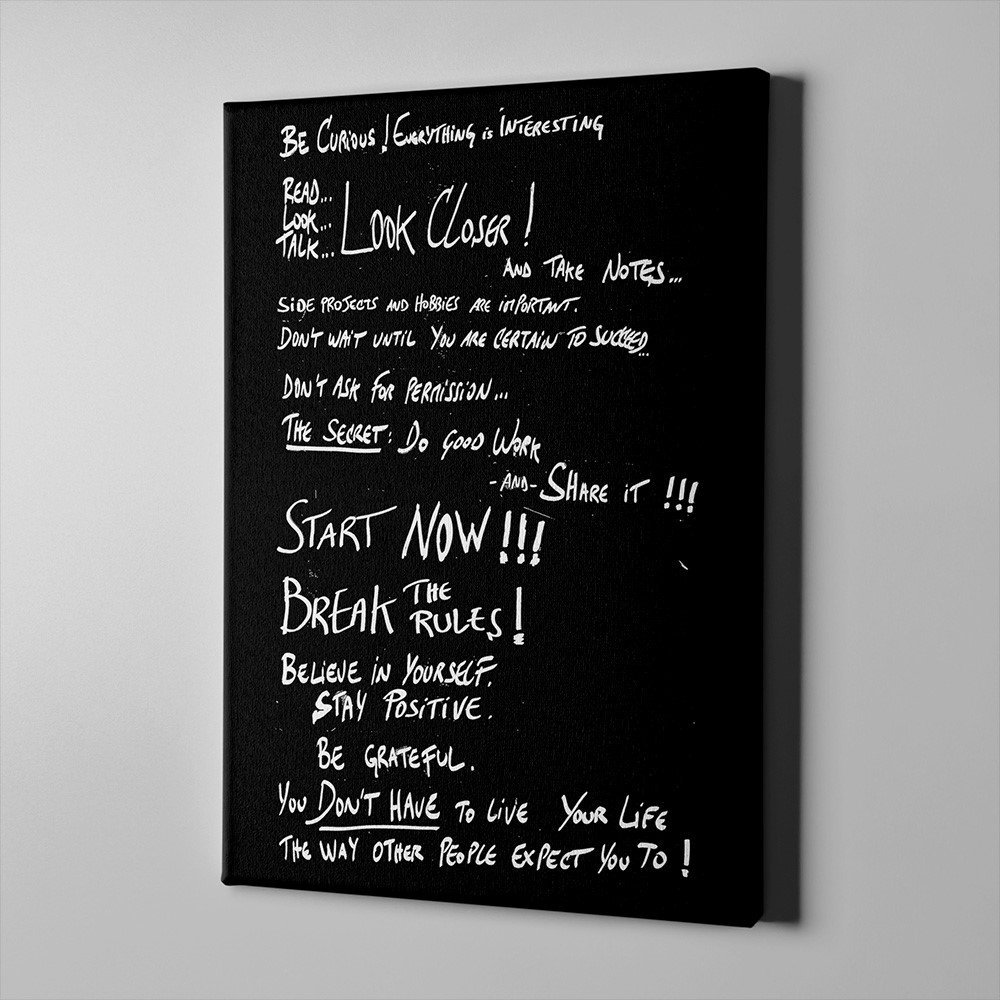 BE CURIOUS! EVERYTHING is INTERESTING
READ...
LOOK...
TALK...
LOOK CLOSER!
AND TAKE NOTES...
SIDE PROJECTS AND HOBBIES ARE IMPORTANT.
DON'T WAIT UNTIL YOU ARE CERTAIN TO SUCCEED...
DON'T ASK FOR PERMISSION...
THE SECRET: DO GOOD WORK
-AND- SHARE IT !!!
START NOW!!!
BREAK THE RULES!
BELIEVE IN YOURSELF.
STAY POSITIVE.
BE GRATEFUL.
YOU DON'T HAVE TO LIVE YOUR LIFE
THE WAY OTHER PEOPLE EXPECT YOU TO!